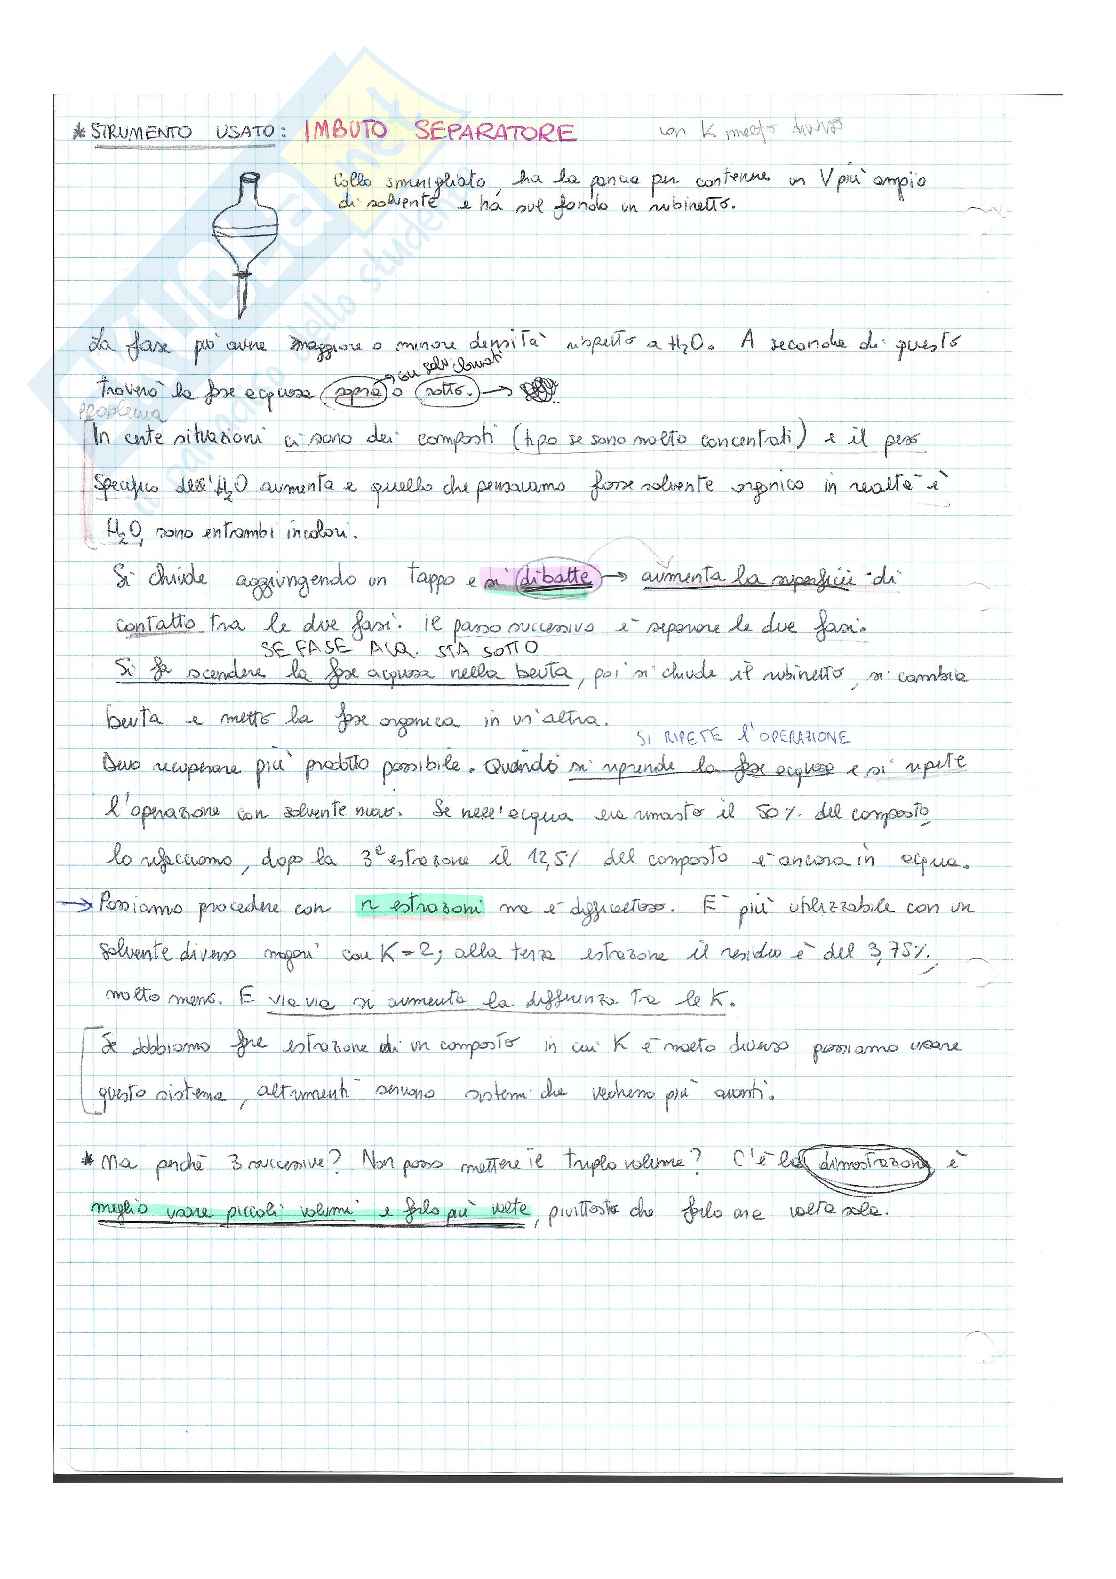 * STRUMENTO USATO: IMBUTO SEPARATORE con K molto diverso
Collo smerigliato, ha la pancia per contenere un V più ampio
di solvente e ha sul fondo un rubinetto.
La fase può avere maggiore o minore densità rispetto a H2O. A seconda di questo
con solv. clorurati
troverò la fase acquosa sopra o sotto. →
Problema
In certe situazioni ci sono dei composti (tipo se sono molto concentrati) e il peso
specifico dell'H2O aumenta e quello che pensavamo fosse solvente organico in realtà è
H2O, sono entrambi incolori.
Si chiude aggiungendo un tappo e si dibatte → aumenta la superficie di
contatto tra le due fasi. Il passo successivo è separare le due fasi.
SE FASE ACQ. STA SOTTO
Si fa scendere la fase acquosa nella beuta, poi si chiude il rubinetto, si cambia
beuta e metto la fase organica in un'altra.
SI RIPETE l'OPERAZIONE
Devo recuperare più prodotto possibile. Quando si riprende la fase acquosa e si ripete
l'operazione con solvente nuovo. Se nell'acqua era rimasto il 50% del composto
lo rifacciamo, dopo la 3ª estrazione il 12,5% del composto è ancora in acqua.
→ Possiamo procedere con n estrazioni ma è difficoltoso. È più utilizzabile con un
solvente diverso magari con K=2; alla terza estrazione il residuo è del 3,75%.
molto meno. E via via si aumenta la differenza tra le K.
Se dobbiamo fare estrazione di un composto in cui K è molto diverso possiamo usare
questo sistema, altrimenti servono sistemi che vedremo più avanti.
* Ma perché 3 successive? Non posso mettere il triplo volume? C'è la dimostrazione è
meglio usare piccoli volumi e farlo più volte, piuttosto che farlo una volta sola.